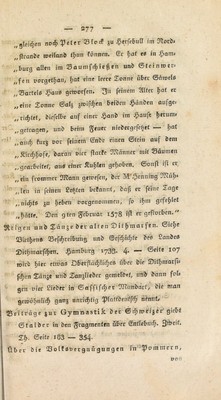 — 277 —
„gleichen noch Peter Block zu Hersebull im Nord-
strande weiland thun können. Er hat es in Ham-
burg allen im Baumschießen und Steinwer-
fen vorgethan, hat eine leere Tonne über
Bartels Haus geworfen. In seinem Alter hat er
eine Tonne Salz zwischen beiden Händen aufge-
richtet, dieselbe auf einer Hand im Hause herum-
getragen, und beym Feuer niedergesetzt — hat
auch kurz vor seinem Ende einen Stein auf dem
Kirchhofe, daran vier starke Männer mit Bäumen
gearbeitet, aus einer Kuhlen gehoben. Sonst ist er
ein frommer Mann gewesen, der Mr Henning Müh-
len in seinen letzten bekannt, daß er seine Tage
nichts zu heben vorgenommen, so ihm gefehlet
hätte. Den 9ten Februar 1578 ist er gestorben."
Reigen und Tänze der alten Dithmarsen. Siehe
Viethens Beschreibung und Geschichte des Landes
Dithmarschen. Hamburg 1733. 4. — Seite 107
wird hier etwas Oberflächliches über die Dithmarsi-
schen Tänze und Tanzlieder gemeldet, und dann fol-
gen vier Lieder in Sassischer Mundart, die man
gewöhnlich ganz unrichtig Plattdeutsch nennt.
Beiträge zur Gymnastik der Schweizer giebt
Stalder in den Fragmenten über Entlebuch. Zweit.
Th. Seite 163 — 354.
Über die Volksvergnügungen in Pommern,
von